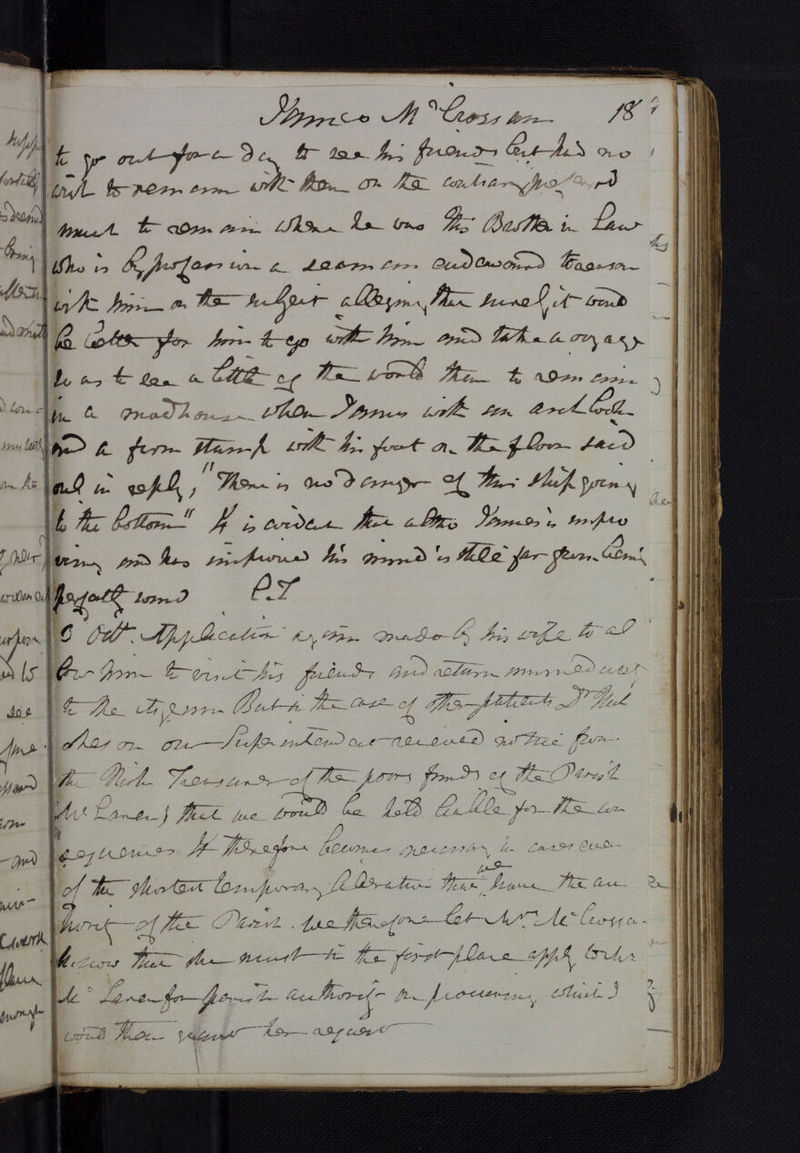 James McCrossan 18
to go out for a day to see his friends but had no
wish to remain with them on the contrary preferred
much to remain where he was His Brother in Law
who is by profession a seaman endeavoured to reason
with him on the subject alleging that surely it would
be better for him to go with him and take a voyage
so as to see a little of the world than to remain
in a madhouse when James with an arch look
and a firm stamp with his foot on the floor said
out in reply, "There is no danger of this ship going
to the bottom" It is evident that altho James is impro
ving and has improved his mind is still far from being
perfectly sound C.T
3d Octr. Application again made by his wife to al
low him to visit his friends and return immediately
to the asylum But in the case of other patients Dr Hut
cheson our Superintendant received notice from
the Treasurer of the poors funds of the Parish
Mr that we would be held liable for the con
sequences It therefore becomes necessary in cases even
of the shortest temporary liberation that we have the au
thority of the Parish. We therefore let Mrs. McCrossan
know that she must in the first place apply to
Mr for parish authority on procuring which I
would then grant her request